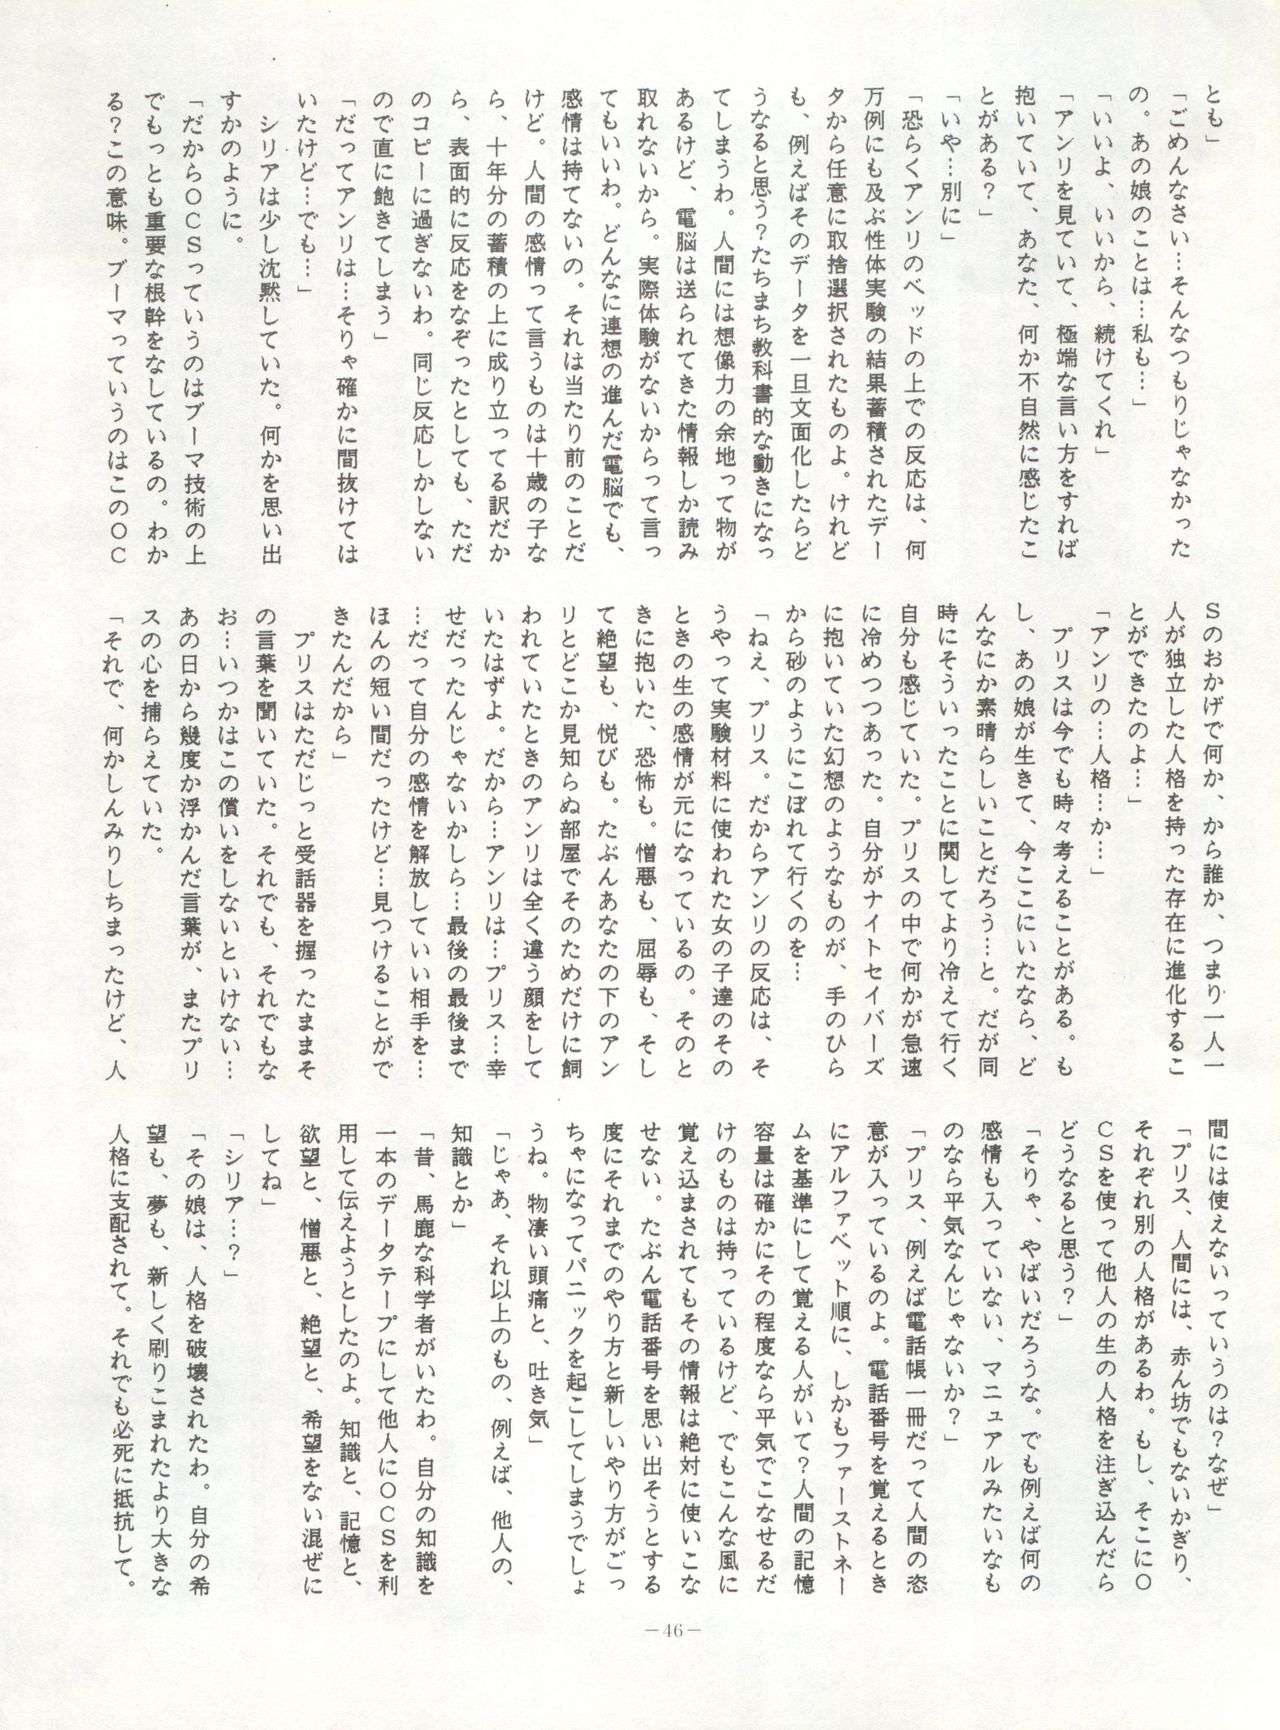 とも」
「ごめんなさい…そんなつもりじゃなかった
の。あの娘のことは…私も…」
「いいよ、いいから、続けてくれ」
「アンリを見ていて、極端な言い方をすれば
抱いていて、あなた、何か不自然に感じたこ
とがある？」
「いや…別に」
「恐らくアンリのベッドの上での反応は、何
万例にも及ぶ性体実験の結果蓄積されたデー
タから任意に取捨選択されたものよ。けれど
も、例えばそのデータを一旦文面化したらど
うなると思う？たちまち教科書的な動きになっ
てしまうわ。人間には想像力の余地って物が
あるけど、電脳は送られてきた情報しか読み
取れないから。実際体験がないからって言っ
てもいいわ。どんなに連想の進んだ電脳でも、
感情は持てないの。それは当たり前のことだ
けど。人間の感情って言うものは十歳の子な
ら、十年分の蓄積の上に成り立ってる訳だか
ら、表面的に反応をなぞったとしても、ただ
のコピーに過ぎないわ。同じ反応しかしない
ので直に飽きてしまう」
「だってアンリは…そりゃ確かに間抜けては
いたけど…でも…」
　シリアは少し沈黙していた。何かを思い出
すかのように。
「だからＯＣＳっていうのはブーマ技術の上
でもっとも重要な根幹をなしているの。わか
る？この意味。ブーマっていうのはこのＯＣ
Ｓのおかげで何か、から誰か、つまり一人一
人が独立した人格を持った存在に進化するこ
とができたのよ…」
「アンリの…人格…か…」
　プリスは今でも時々考えることがある。も
し、あの娘が生きて、今ここにいたなら、ど
んなにか素晴らしいことだろう…と。だが同
時にそういったことに関してより冷えて行く
自分も感じていた。プリスの中で何かが急速
に冷めつつあった。自分がナイトセイバーズ
に抱いていた幻想のようなものが、手のひら
から砂のようにこぼれて行くのを…
「ねえ、プリス。だからアンリの反応は、そ
うやって実験材料に使われた女の子達のその
ときの生の感情が元になっているの。そのと
きに抱いた、恐怖も。憎悪も、屈辱も、そし
て絶望も、悦びも。たぶんあなたの下のアン
リとどこか見知らぬ部屋でそのためだけに飼
われていたときのアンリは全く違う顔をして
いたはずよ。だから…アンリは…プリス…幸
せだったんじゃないかしら…最後の最後まで
…だって自分の感情を解放していい相手を…
ほんの短い間だったけど…見つけることがで
きたんだから」
　プリスはただじっと受話器を握ったままそ
の言葉を聞いていた。それでも、それでもな
お…いつかはこの償いをしないといけない…
あの日から幾度か浮かんだ言葉が、またプリ
スの心を捕らえていた。
「それで、何かしんみりしちまったけど、人
間には使えないっていうのは？なぜ」
「プリス、人間には、赤ん坊でもないかぎり、
それぞれ別の人格があるわ。もし、そこにＯ
ＣＳを使って他人の生の人格を注ぎ込んだら
どうなると思う？」
「そりゃ、やばいだろうな。でも例えば何の
感情も入っていない、マニュアルみたいなも
のなら平気なんじゃないか？」
「プリス、例えば電話帳一冊だって人間の恣
意が入っているのよ。電話番号を覚えるとき
にアルファベット順に、しかもファーストネー
ムを基準にして覚える人がいて？人間の記憶
容量は確かにその程度なら平気でこなせるだ
けのものは持っているけど、でもこんな風に
覚え込まされてもその情報は絶対に使いこな
せない。たぶん電話番号を思い出そうとする
度にそれまでのやり方と新しいやり方がごっ
ちゃになってパニックを起こしてしまうでしょ
うね。物凄い頭痛と、吐き気」
「じゃあ、それ以上のもの、例えば、他人の、
知識とか」
「昔、馬鹿な科学者がいたわ。自分の知識を
一本のデータテープにして他人にＯＣＳを利
用して伝えようとしたのよ。知識と、記憶と、
欲望と、憎悪と、絶望と、希望をない混ぜに
してね」
「シリア…？」
「その娘は、人格を破壊されたわ。自分の希
望も、夢も、新しく刷りこまれたより大きな
人格に支配されて。それでも必死に抵抗して。
―46―